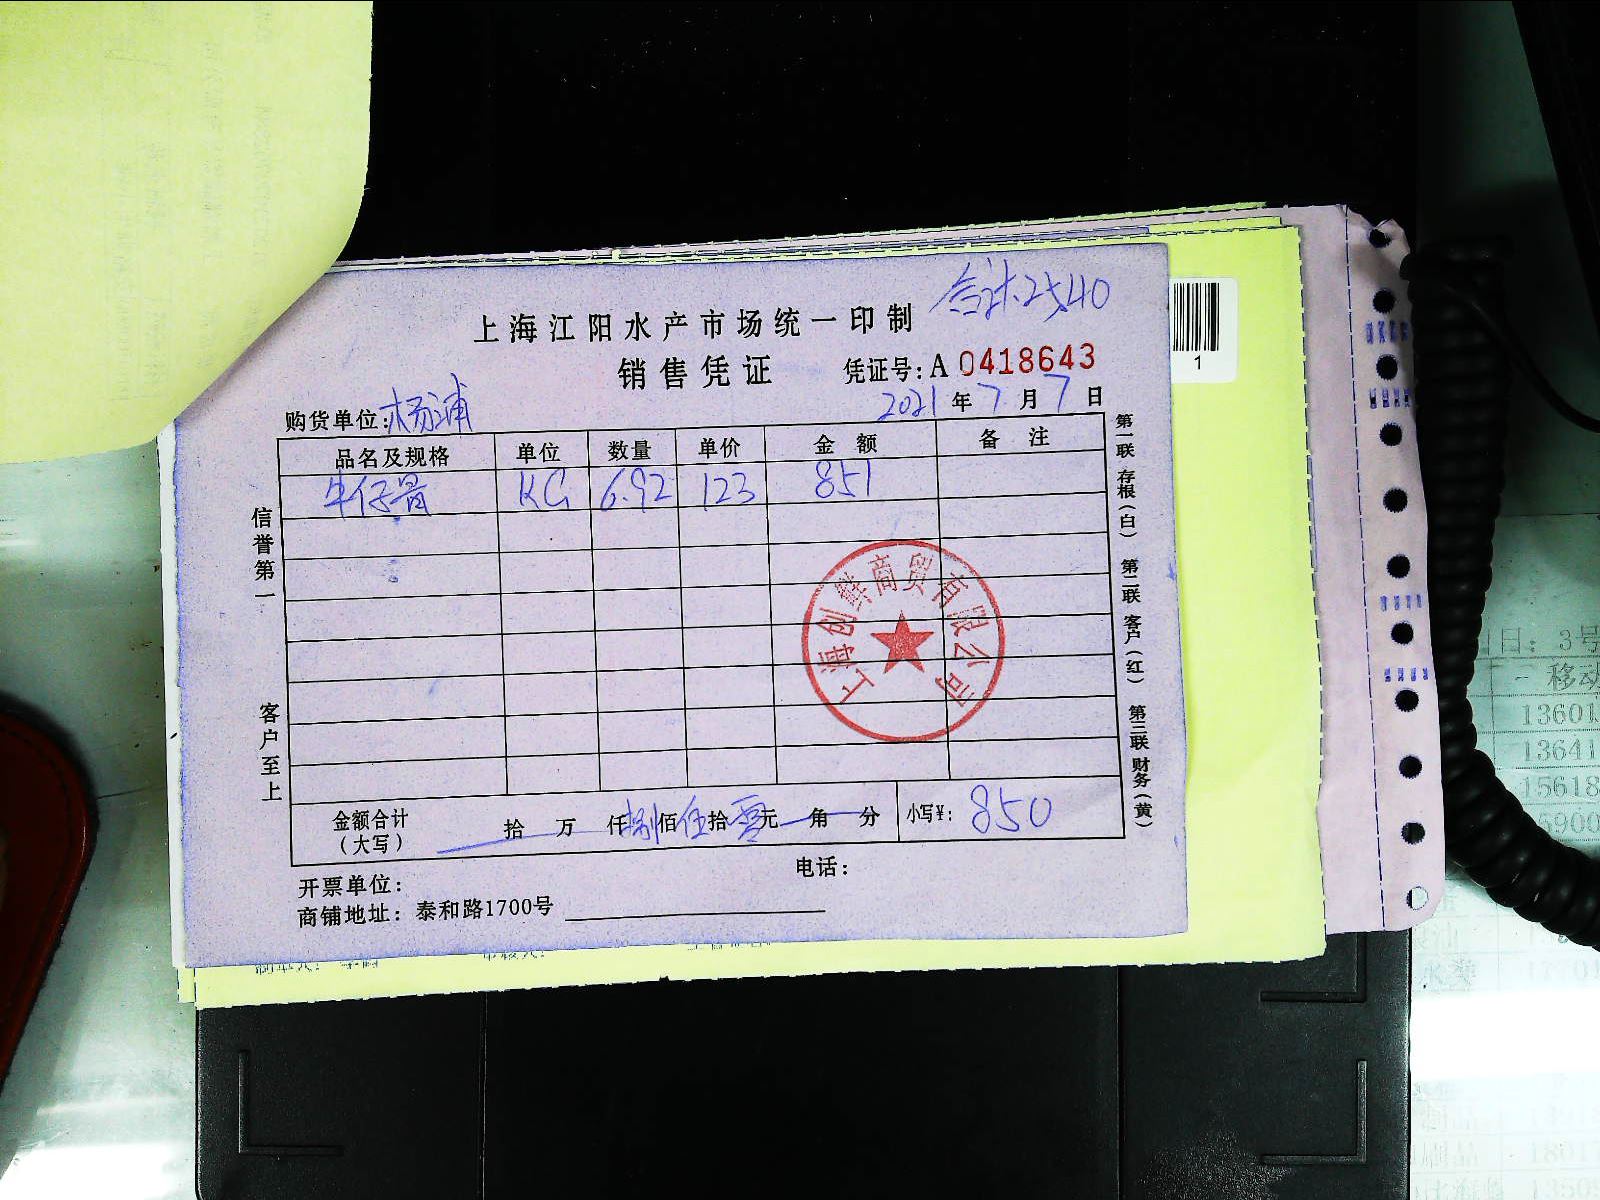 合计2540
上海江阳水产市场统一印制
销售凭证 凭证号: A 0418643
购货单位: 杨浦 2021年7月7日
品名及规格 单位 数量 单价 金额 备注
牛仔骨 KG 6.92 123 851
信誉第一
客户至上
上海创鲜商贸有限公司
第一联 存根(白) 第二联 客户(红) 第三联 财务(黄)
金额合计(大写) 拾万仟捌佰伍拾零元角分 小写¥: 850
开票单位: 电话:
商铺地址: 泰和路1700号
1
日: 3号
移动
13601
13641
15618
5900